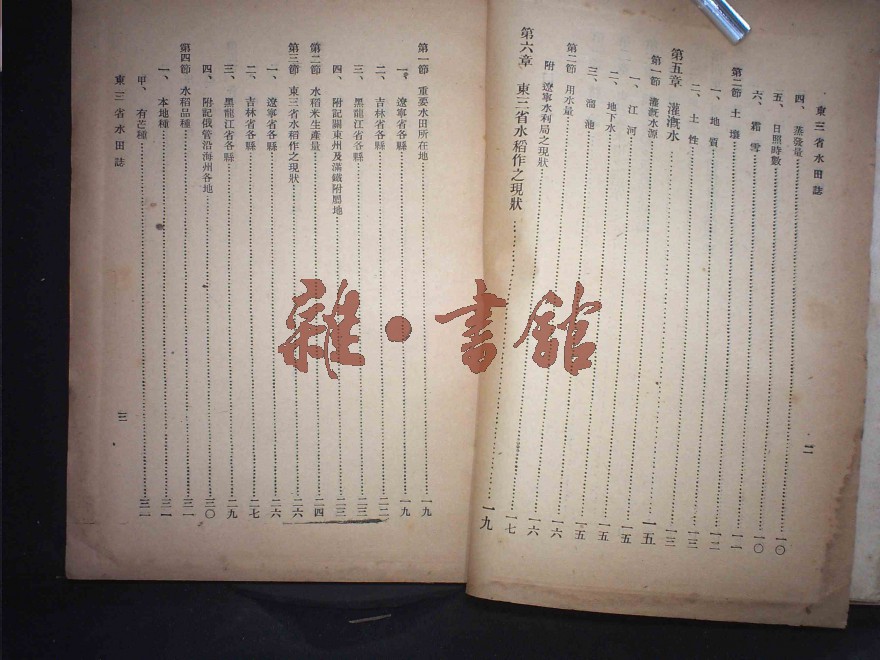 東三省水田誌
四、蒸發量……一〇
五、日照時數……一〇
六、霜雪……一一
第二節 土壤……一二
一、地質……一三
二、土性……一三
第五章 灌漑水……一五
第一節 灌漑水源……一五
一、江河……一五
二、地下水……一五
三、溜池……一六
第二節 用水量……一六
附 遼寧水利局之現狀……一七
第六章 東三省水稻作之現狀……一九
二
第一節 重要水田所在地……一九
一、遼寧省各縣……一九
二、吉林省各縣……二二
三、黑龍江省各縣……二三
四、附記關東州及滿鐵附屬地……二三
第二節 水稻米生產量……二四
第三節 東三省水稻作之現狀……二六
一、遼寧省各縣……二六
二、吉林省各縣……二七
三、黑龍江省各縣……二九
四、附記俄管沿海州各地……三〇
第四節 水稻品種……三一
一、本地種……三一
甲、有芒種……三一
東三省水田誌
三
雜·書館